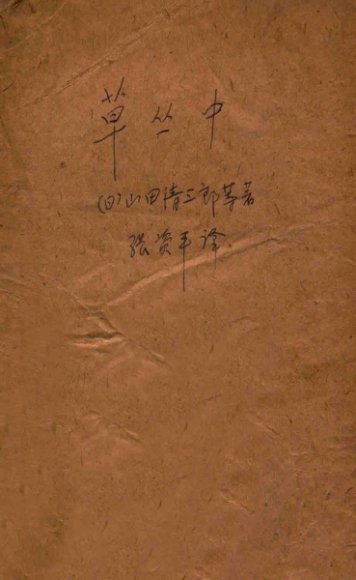 草丛中
(日)山田清三郎等著
张资平译